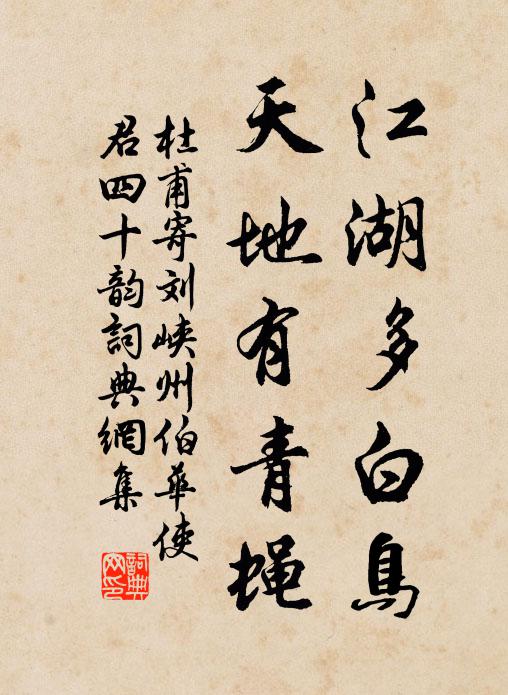 江湖多白鳥
天地有青蝇
杜甫寄刘峡州伯華使
君四十韵詞典網集
詞典网印